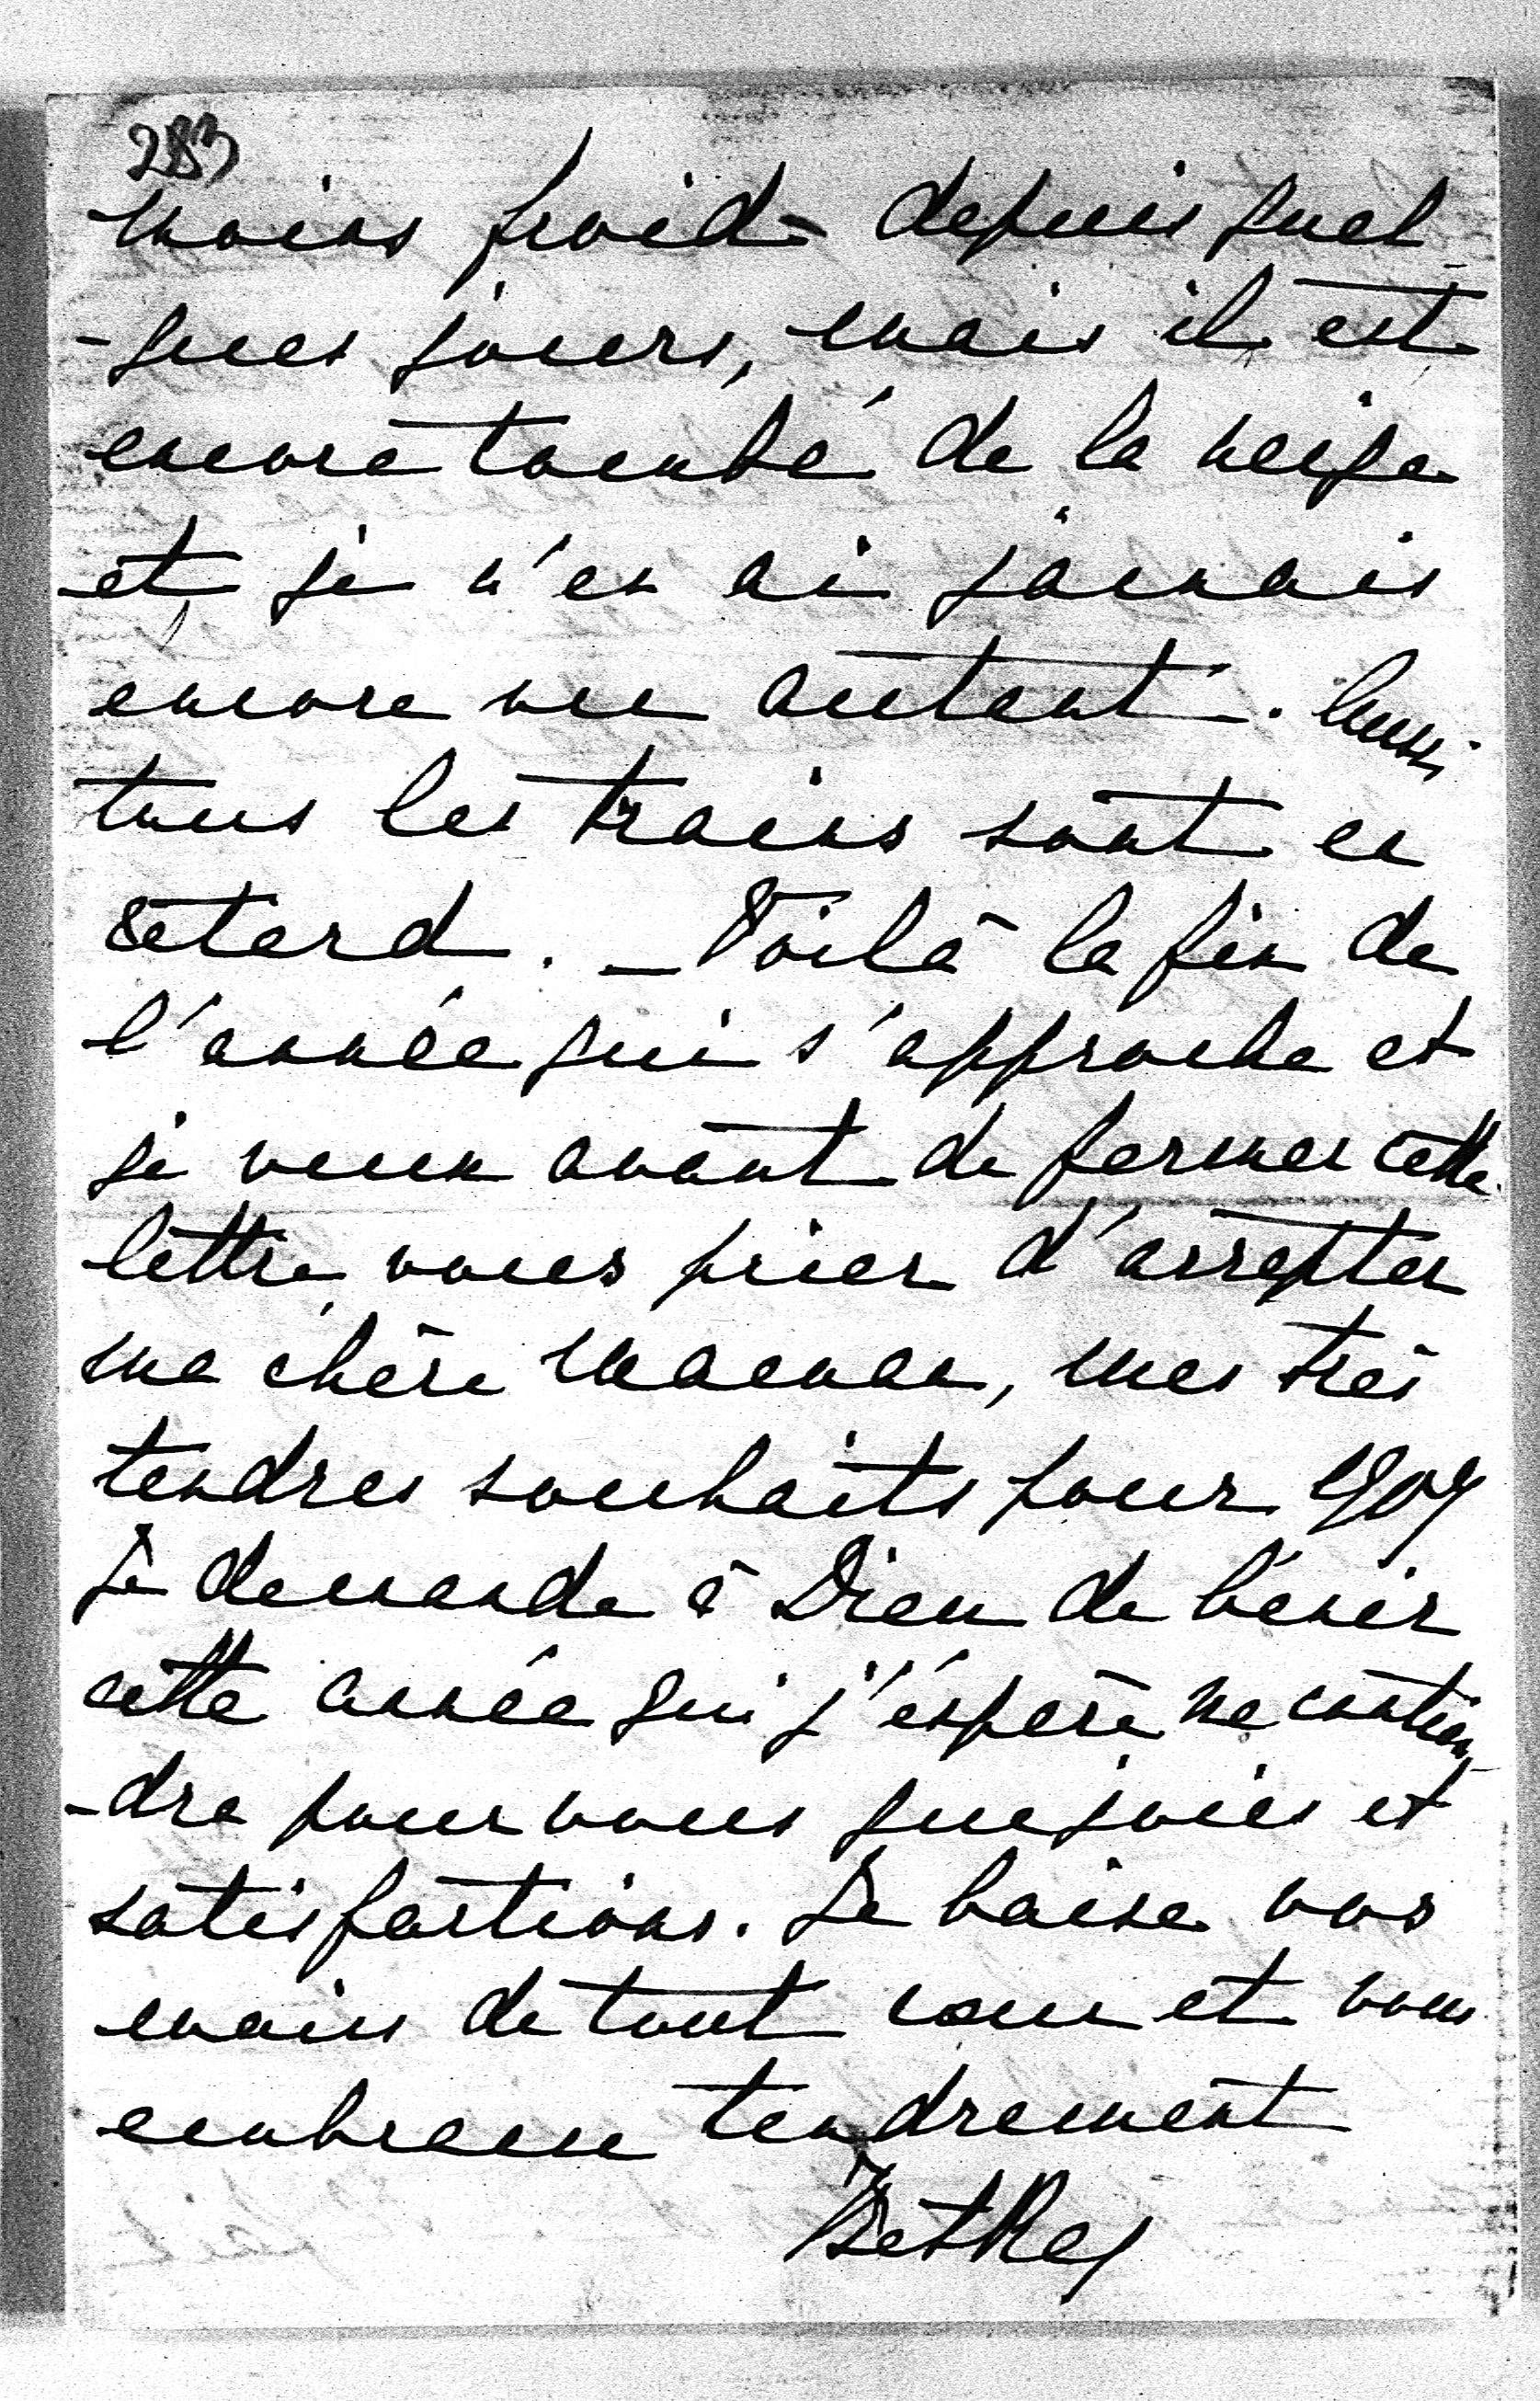 283
moins froid depuis quel
-ques jours, mais il est
encore tombé de la neige
et je n'en ai jamais
encore vu autant. Aussi
tous les trains sont en
retard. _ Voilà la fin de
l'année qui s'approche et
je veux avant de fermer cette
lettre vous prier d'accepter
ma chère maman, mes très
tendres souhaits pour 1909
Je demande à Dieu de bénir
cette année qui j'éspère ne contien
-dra pour vous que joies et
satisfactions. Je baise vos
mains de tout cœur et vous
embrasse tendrement